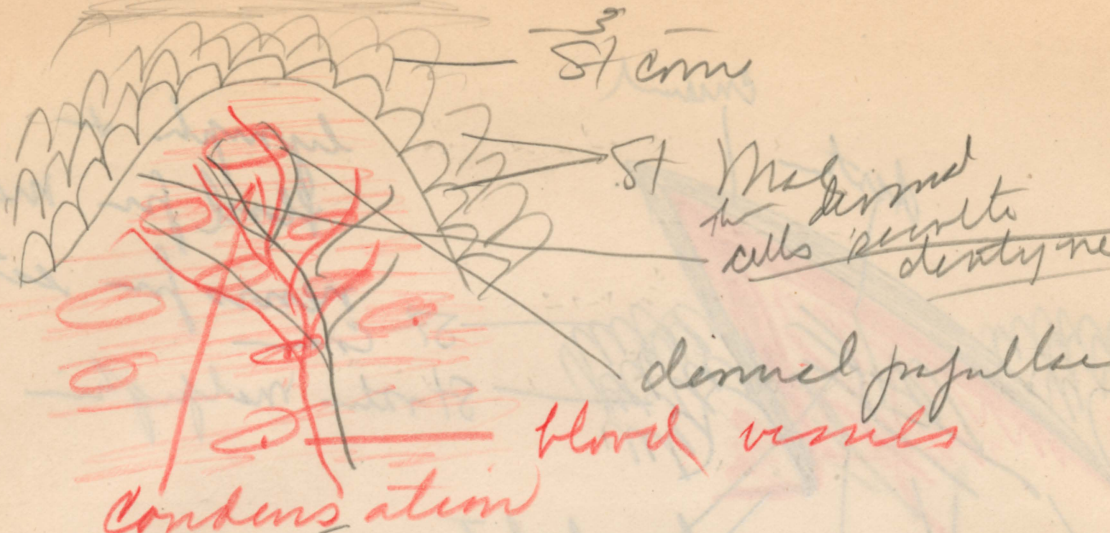 3
St corn
St Mal
dermal
cells secrete
dentyne
dermal papillae
blood vessels
condensation